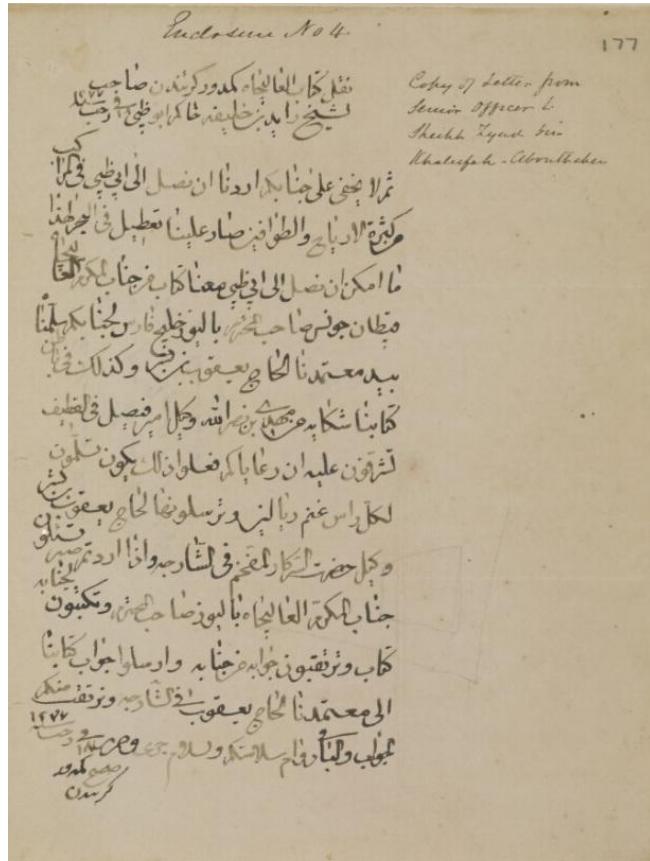 Enclosure No 4.
177
Copy of Letter from
Senior Officer to
Sheikh Zyed bin
Khaleefah - Abouthabee
نقل كتاب العاليجاه كمدور كربندن صاحب
لشيخ زايد بن خليفه حاكم ابوظبي في رجب ١٢٧٧
ثم لا يخفى على جنابكم اردنا ان نصل الى ابي ظبي في المركب
من كثرة الارياح والطوافين صار علينا تعطيل في البحر لهذا
ما امكن ان نصل الى ابي ظبي معنا كتاب من جناب المكرم العاليجاه
قبطان جونس صاحب باليوز خليج فارس لجنابكم سلمنا
بيد معتمدنا الحاج يعقوب وكذلك في
كتابنا شكايه من مهدي بن نصر الله وكيل امير فيصل في القطيف
تشرفون عليه ان رعاياكم فعلوا ذلك يكون تسلمون
لكل راس غنم ريالين وترسلونها الحاج يعقوب
وكيل حضرت السركار المفخم في الشارجه واذا اردتم
جناب المكرم العاليجاه باليوز صاحب وتكتبون لجنابه
كتاب وترتقبون جوابه من جنابه وارسلوا جواب كتابنا
الى معتمدنا الحاج يعقوب في الشارجه ونرتقب منكم
الجواب ودام سلامتكم والسلام رجب ١٢٧٧
صحيح كمدور
كربندن